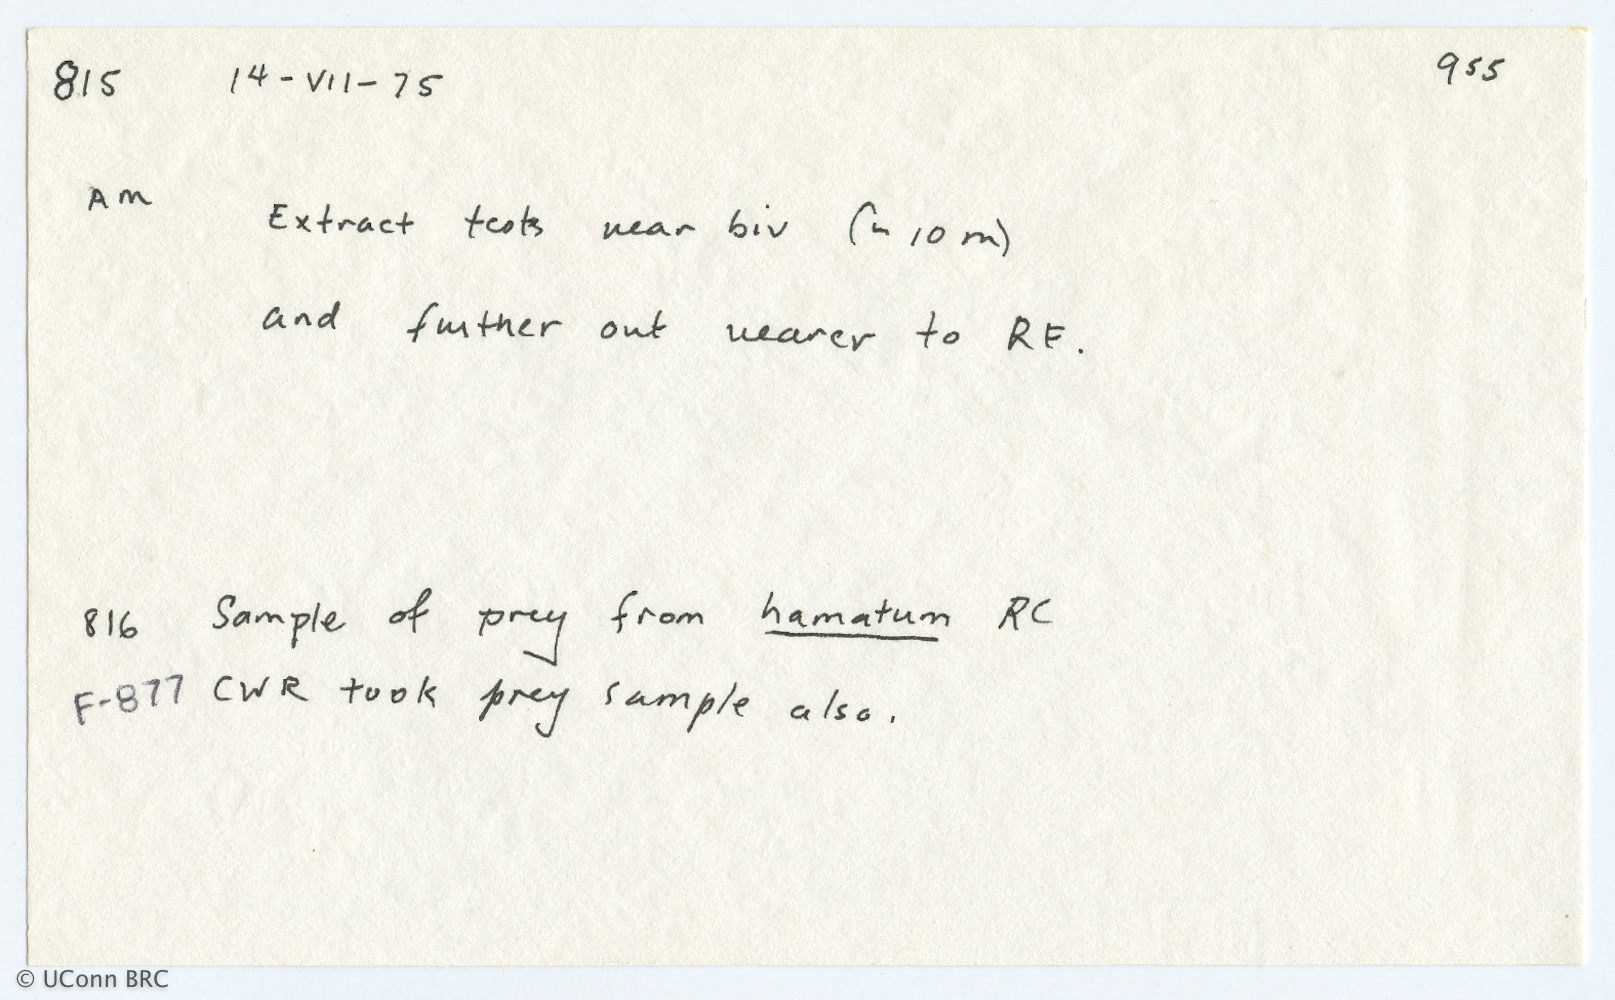 815 14-VII-75 955
AM
Extract tests near biv (~10 m)
and further out nearer to RE.
816 Sample of prey from hamatum RC
F-877 CWR took prey sample also.
© UConn BRC